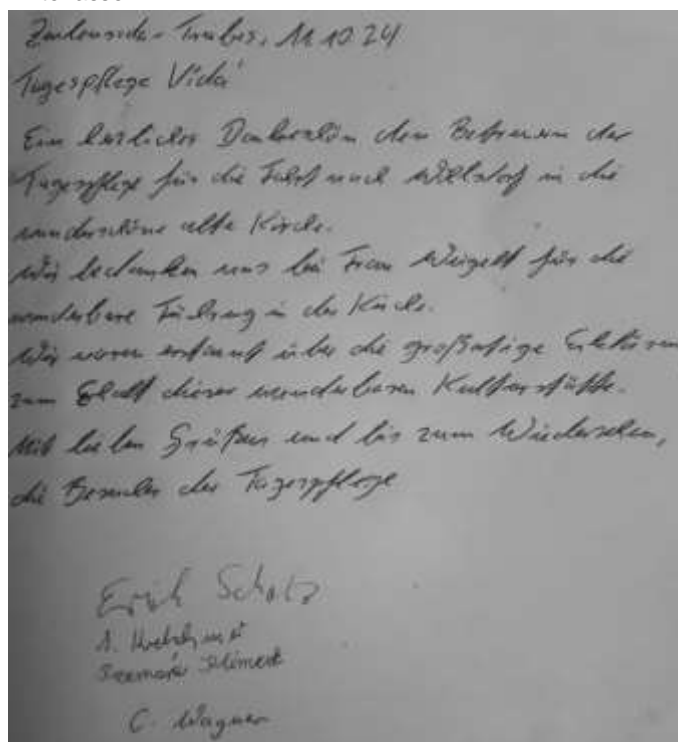 11.10.24
Tagespflege Vida
Ein herzliches Dankeschön den Betreuern der
Tagespflege für die Fahrt nach in die
wunderschöne alte Kirche.
Wir bedanken uns bei Frau Weigelt für die
wunderbare Führung in der Kirche.
Wir waren erstaunt über die großartige
zum Erhalt dieser wunderbaren Kulturstätte.
Mit lieben Grüßen und bis zum Wiedersehen,
die Besucher der Tagespflege
Erich Scholz
C. Wagner